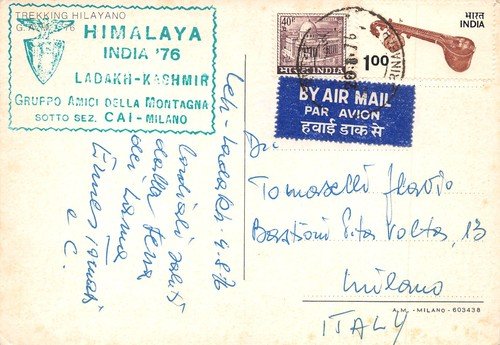 TREKKING HILAYANO
HIMALAYA
INDIA '76
LADAKH-KASHMIR
GRUPPO AMICI DELLA MONTAGNA
SOTTO SEZ. CAI-MILANO
40
भारत INDIA
1.00
भारत
INDIA
BY AIR MAIL
PAR AVION
हवाई डाक से
Leh-Ladakh 9.8.76
Cordiali saluti
dalla terra
dei Lama
e C.
Tomaselli Flavio
Bastioni P.ta Volta, 13
Milano
ITALY
A.M. - MILANO - 603438